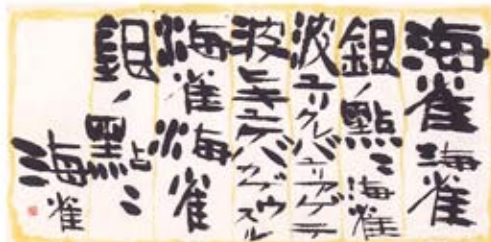 海雀海雀
銀ノ點〻海雀
波ユリクレバユリアゲテ
波ヒキユケバカゲウスル
海雀海雀
銀ノ點〻
海雀